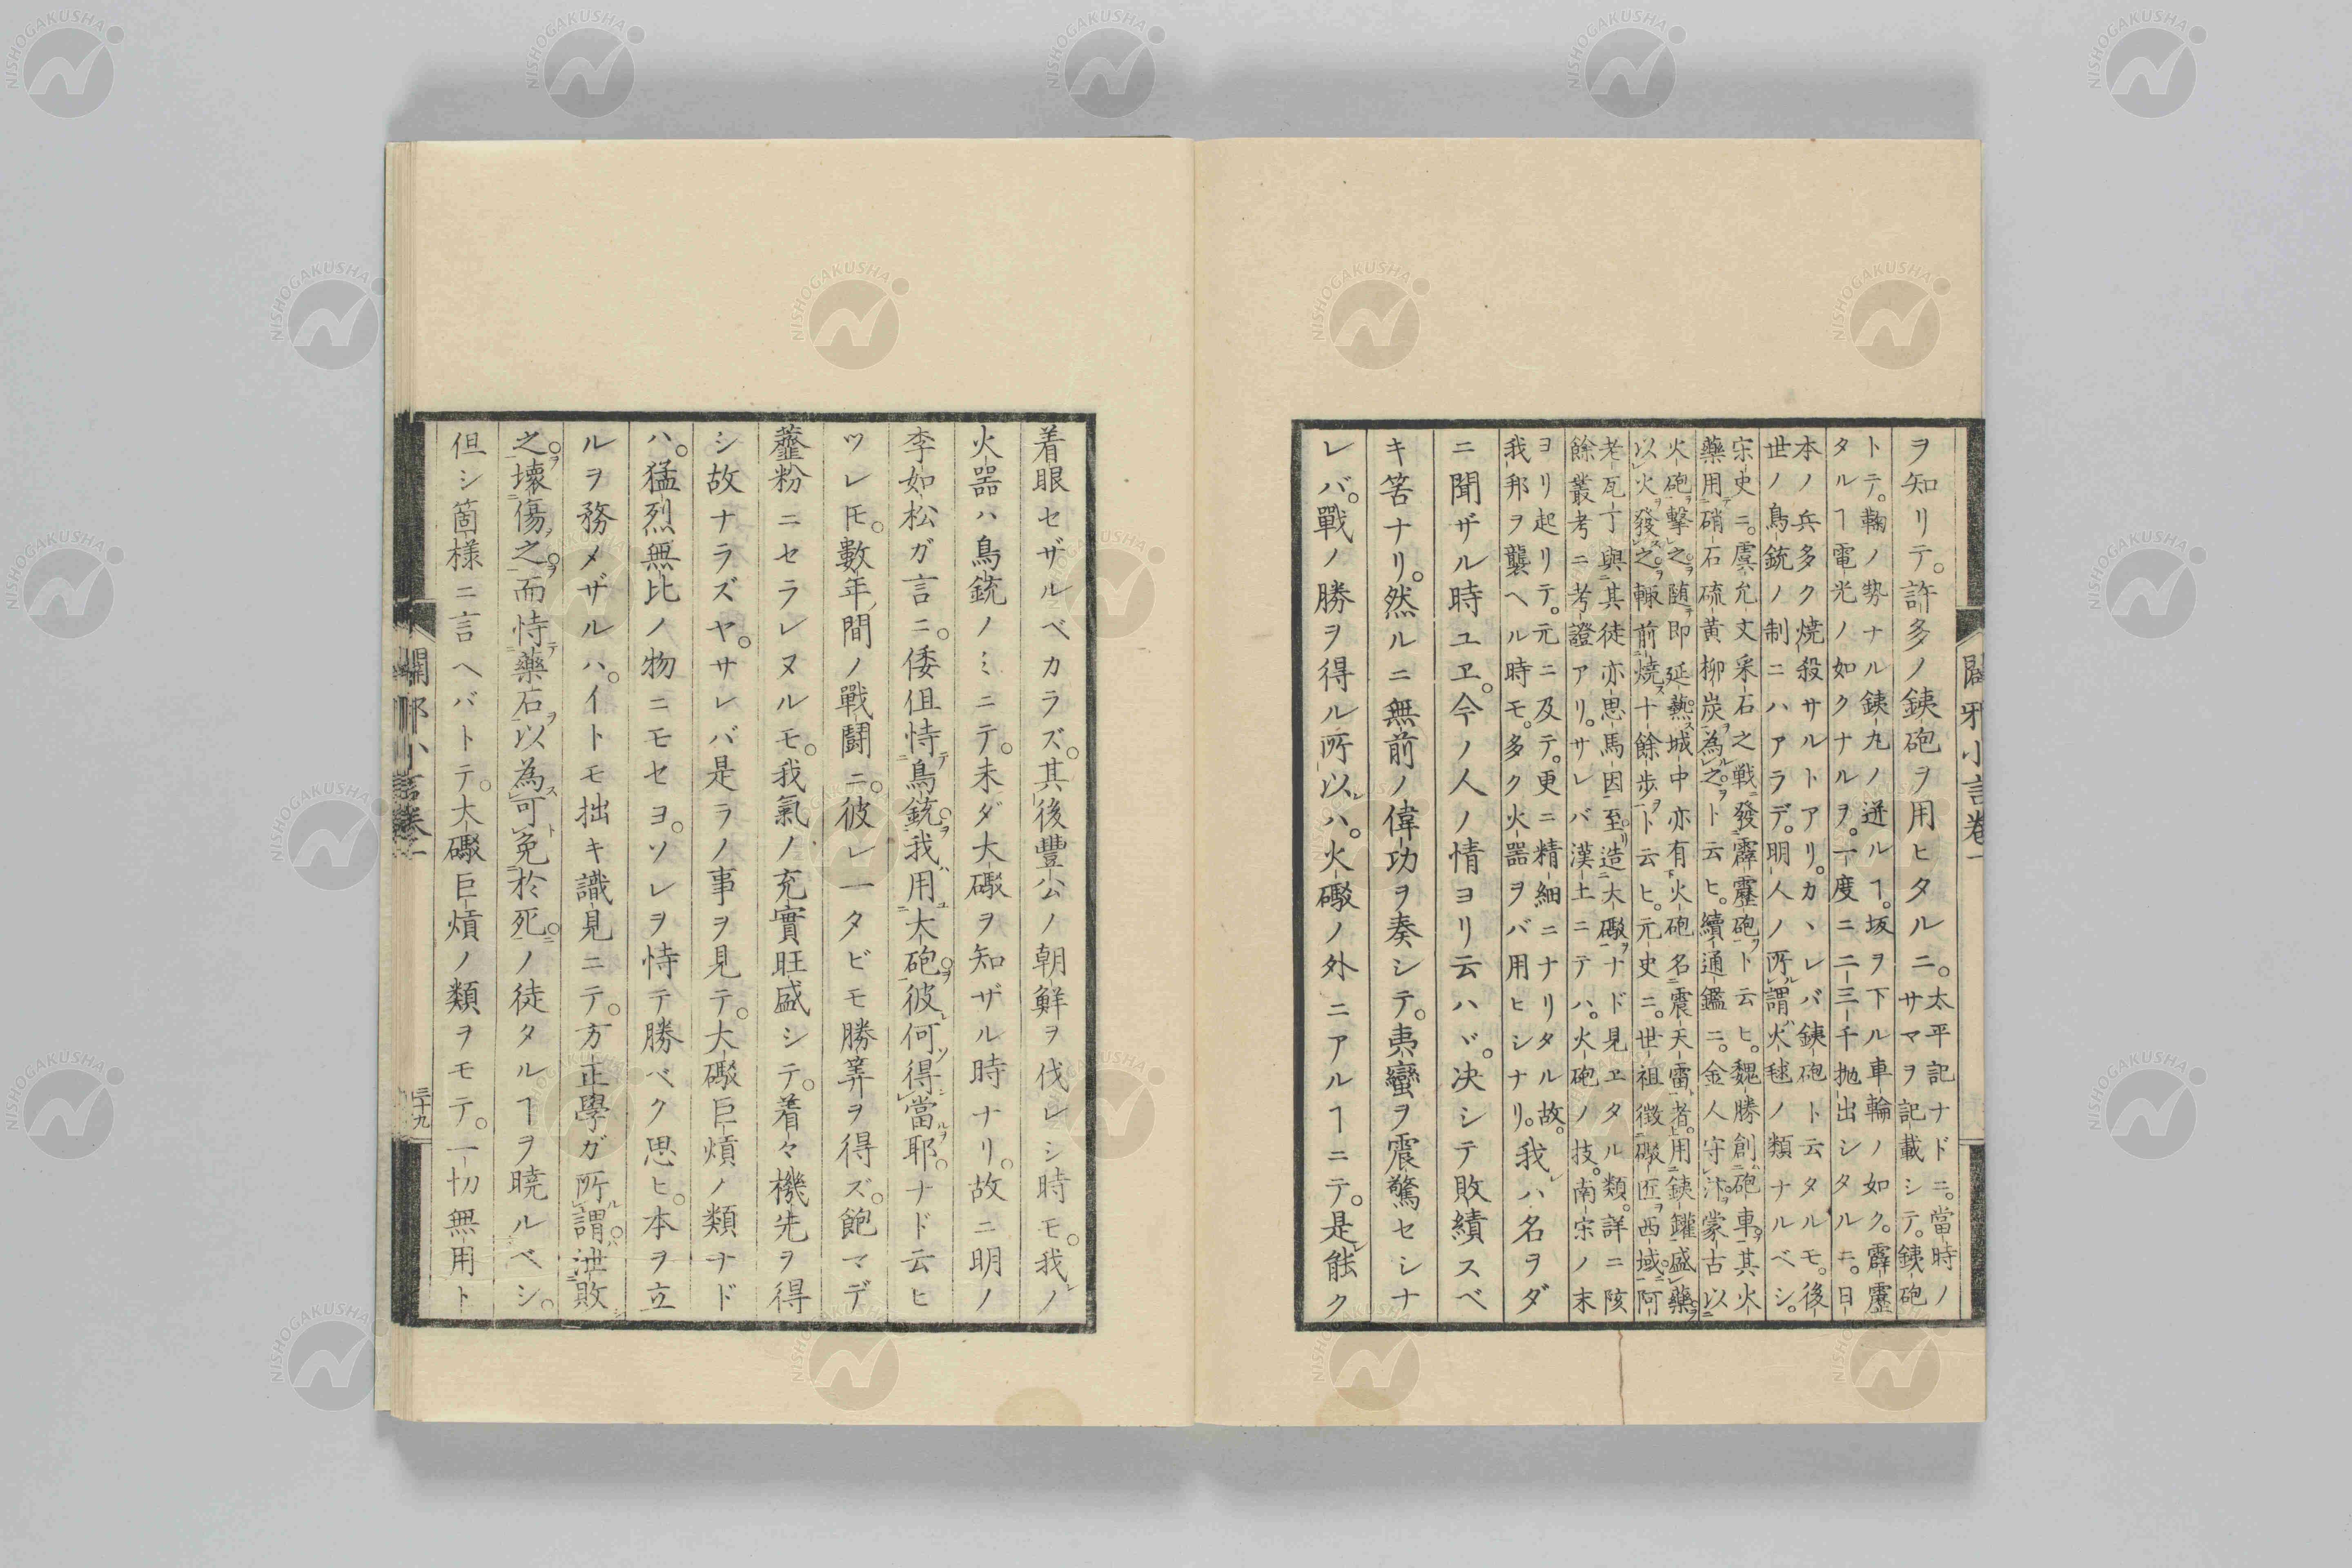 ヲ知リテ。許多ノ銕砲ヲ用ヒタルニ。太平記ナドニ。當時ノ
サマヲ記載シテ。銕砲
トテ。鞠ノ勢ナル銕丸ノ迸ルヿ。坂ヲ下ル車輪ノ如ク。霹靂
タルヿ電光ノ如クナルヲ。一度ニ二三千抛出シタルニ。日
本ノ兵多ク燒殺サルトアリ。カヽレバ銕砲ト云タルモ。後
世ノ鳥銃ノ制ニハアラデ。明人ノ所謂火毬ノ類ナルベシ。
宋史ニ。虞允文采石之戰發霹靂砲ト云ヒ。魏勝創砲車其火
藥用硝石硫黃柳炭為之ト云ヒ。續通鑑ニ。金人守汴蒙古以
火砲擊之随即延爇城中亦有火砲名震天雷者。用銕鑵盛藥
以火發之輙前燒十餘步ト云ヒ。元史ニ。世祖徴礮匠西域阿
老瓦丁與其徒亦思馬因至造大礮ナド見エタル類。詳ニ陔
餘叢考ニ考證アリ。サレバ漢土ニテハ。火砲ノ技。南宋ノ末
ヨリ起リテ。元ニ及テ。更ニ精細ニナリタル故。
我邦ヲ襲ヘル時モ。多ク火器ヲバ用ヒシナリ。我ハ名ヲダ
ニ聞ザル時ユヱ。今ノ人ノ情ヨリ云ハヾ。决シテ敗績スベ
キ筈ナリ。然ルニ無前ノ偉功ヲ奏シテ。夷蠻ヲ震驚セシナ
レバ。戰ノ勝ヲ得ル所以ハ。火礮ノ外ニアルヿニテ。是能ク
闢邪小言卷一
着眼セザルベカラズ。其後豐公ノ朝鮮ヲ伐レシ時モ。我ノ
火器ハ鳥銃ノミニテ。未ダ大礮ヲ知ザル時ナリ。故ニ明ノ
李如松ガ言ニ。倭但恃鳥銃。我用大砲。彼何得當耶。ナド云ヒ
ツレ𪜈。數年間ノ戰鬪ニ。彼レ一タビモ勝筭ヲ得ズ。飽マデ
虀粉ニセラレヌルモ。我氣ノ充實旺盛シテ。着々機先ヲ得
シ故ナラズヤ。サレバ是ラノ事ヲ見テ。大礮巨熕ノ類ナド
ハ。猛烈無比ノ物ニモセヨ。ソレヲ恃テ勝ベク思ヒ。本ヲ立
ルヲ務メザルハ。イトモ拙キ識見ニテ。方正學ガ所謂泄敗
之。壞傷之。而恃藥石以為可免於死。ノ徒タルヿヲ曉ルベシ。
但シ箇様ニ言ヘバトテ。大礮巨熕ノ類ヲモテ。一切無用ト
闢邪小言卷一
三十九